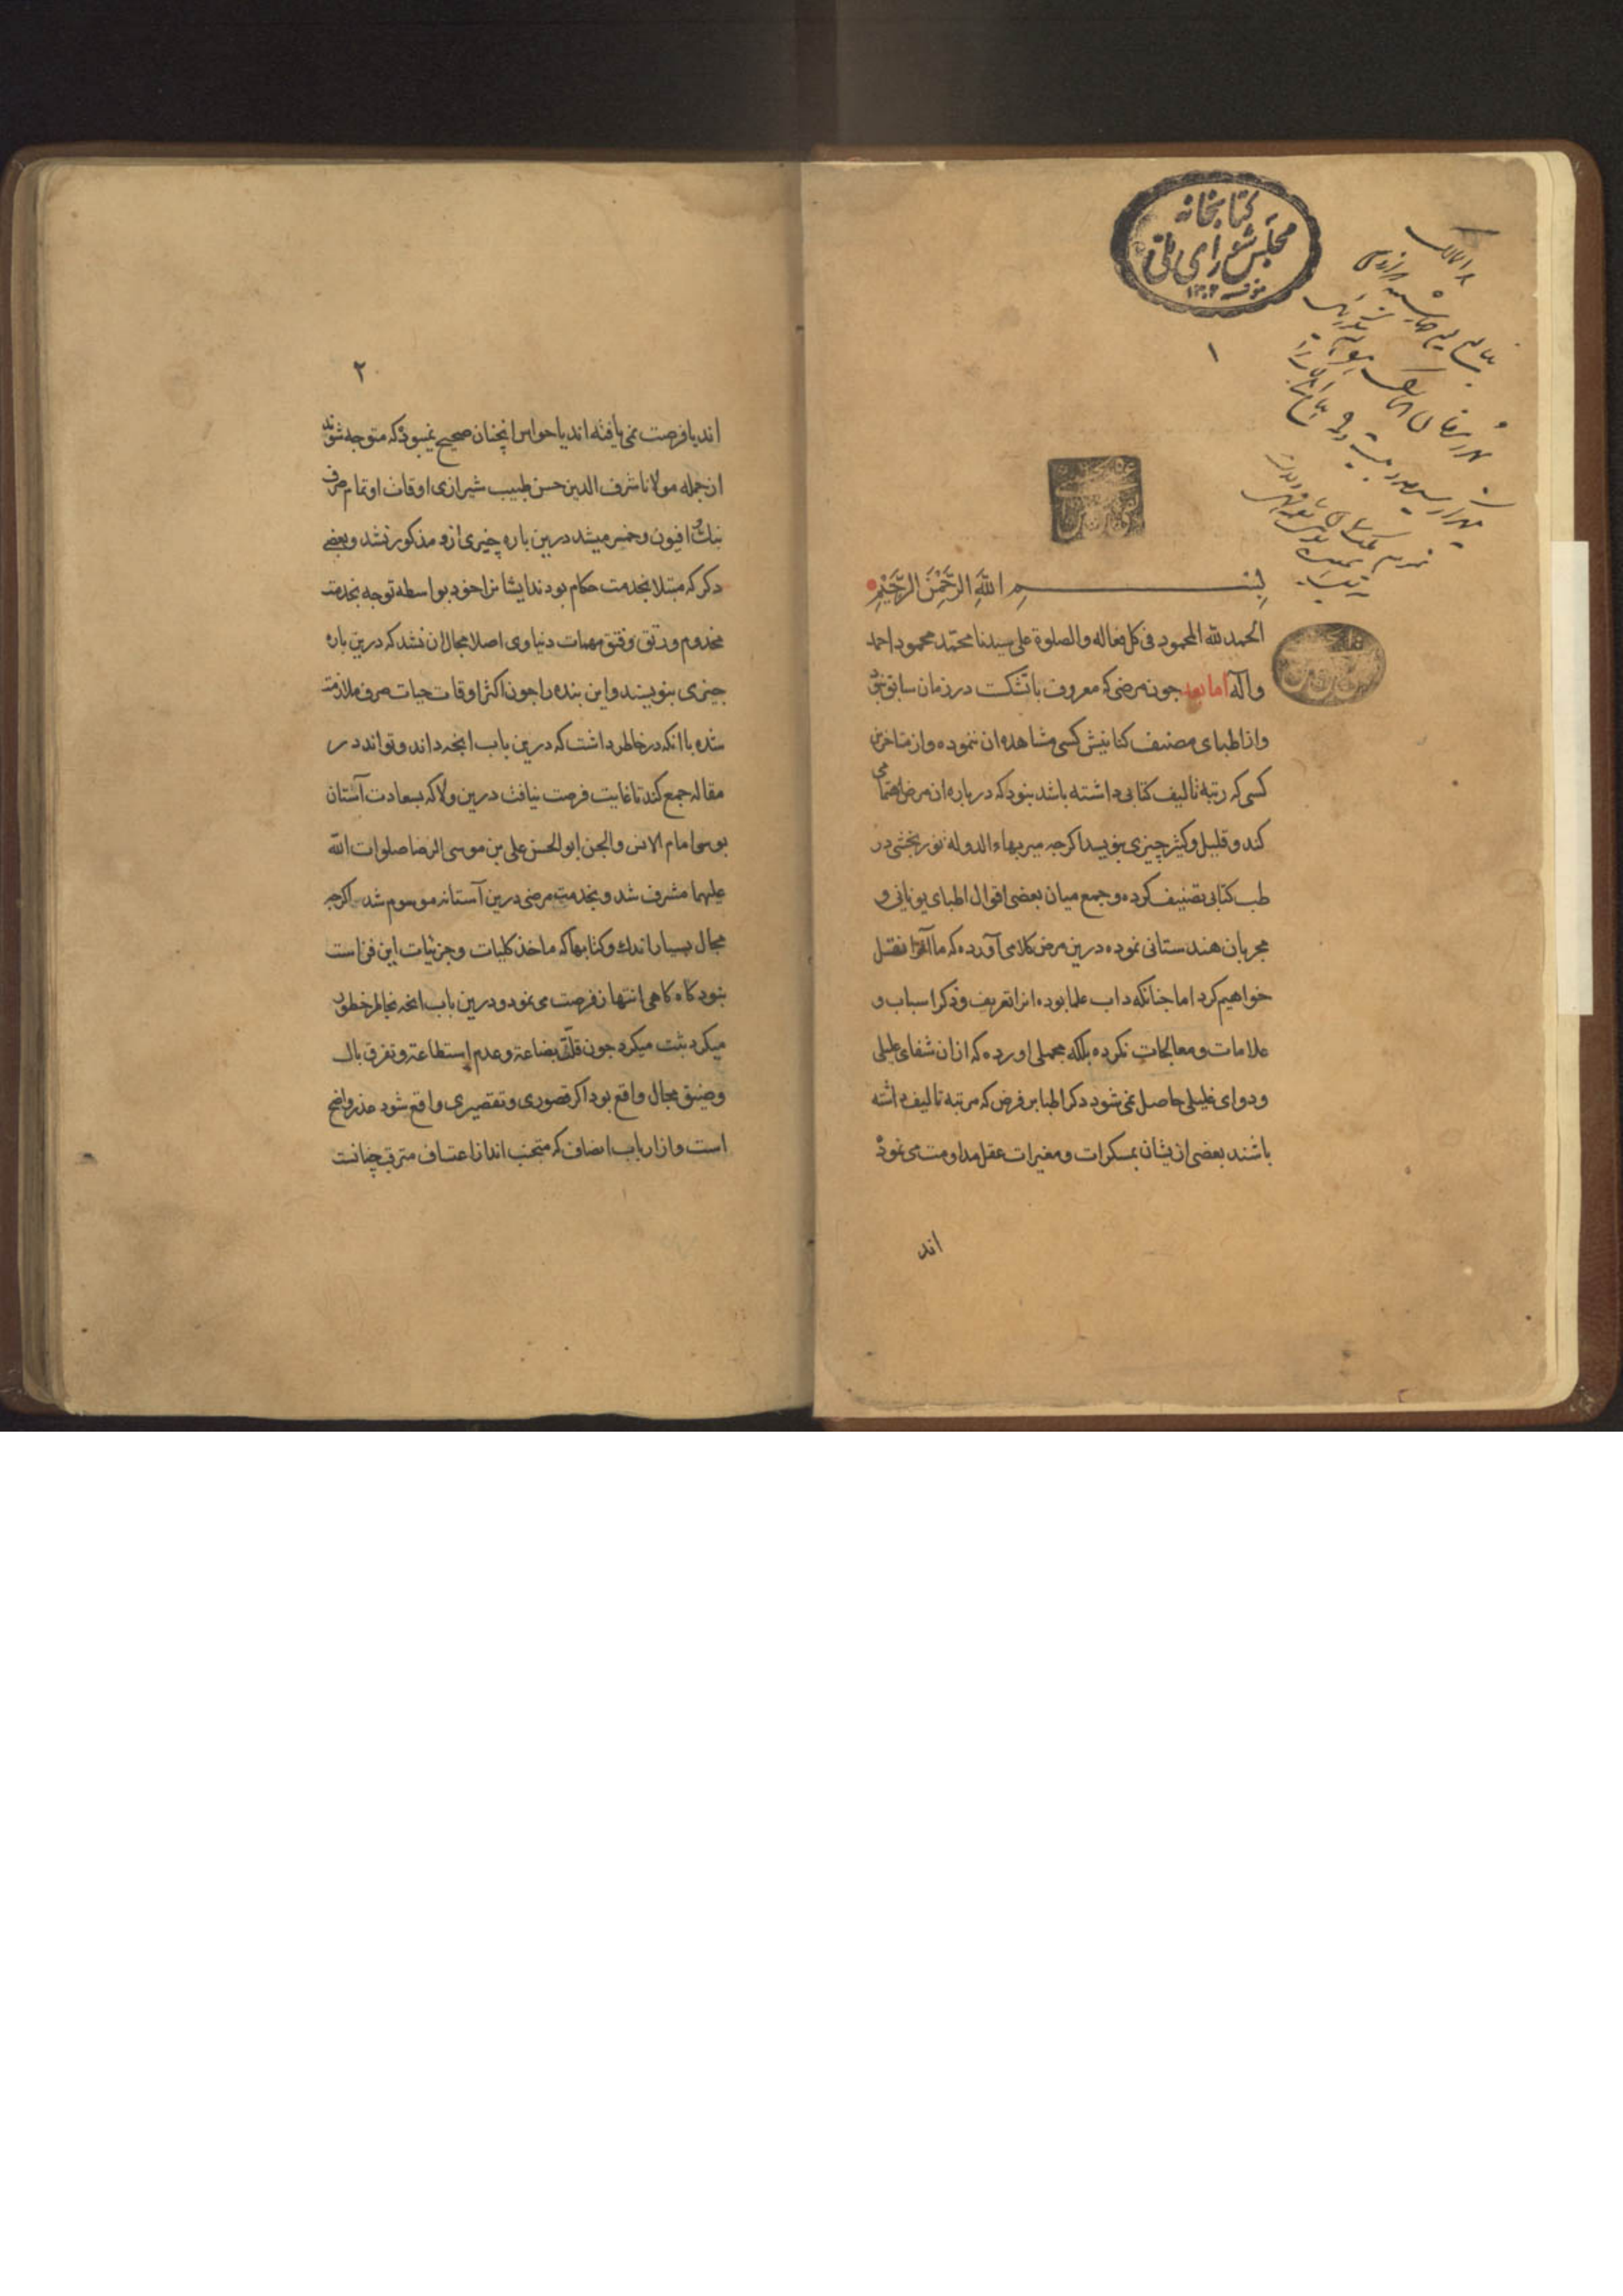 کتابخانه
مجلس شورای ملی
۱۳۰۲
۱
بسم الله الرَّحْمٰنِ الرَّحِيْمِ
الحمد لله المحمود فی کل فعاله والصلوة علی سیدنا محمّد محمود احمد
وآله اما بعد جون مرضی که معروف باتشکت در زمان سابق نبود
واز اطبای مصنف کتابیش کسی مشاهده ان ننموده واز متاخرین
کسی که رتبه تالیف کتابی داشته باشد بنود که درباره ان مرض اهتمامی
کند و قلیل و کثیر چیزی بنویسد اکرجه میر بهاء الدوله نوربخشی در
طب کتابی تصنیف کرده و جمع میان بعضی اقوال اطبای یونانی و
مجربان هندستانی نموده درین مرض کلامی آورده که ما آنرا نقل
خواهیم کرد اما جنانکه داب علما بوده انرا تعریف و ذکر اسباب و
علامات و معالجات نکرده بلکه مجملی اورده که ازان شفای علیلی
و دوای غلیلی حاصل نمی شود دکر اطبا بر فرض که مرتبه تالیف داشته
باشند بعضی ازیشان بمسکرات و مغیرات عقل مداومت می نموده
اند
۲
اند یا فرصت نمی یافته اند یا حواس انچنان صحیح نمیبوده که متوجه شوند
ازجمله مولانا شرف الدین حسن طبیب شیرازی اوقات او تمام صرف
بنك و افیون و خمر میشد درین باره چیزی ازو مذکور نشد و بعضی
دکر که مبتلا بخدمت حکام بودند ایشانرا خود بواسطه توجه بخدمت
مخدوم و رتق و فتق مهمات دنیاوی اصلا مجال ان نشد که درین باره
جیزی بنویسند و این بنده را جون اکثر اوقات حیات صرف ملازمت
شده با انکه در خاطر داشت که درین باب انجه داند و تواند در
مقاله جمع کند تا غایت فرصت نیافت درین ولا که بسعادت آستان
بوسی امام الانس والجن ابو الحسن علی بن موسی الرضا صلوات الله
علیهما مشرف شد و بخدمت مرضی درین آستانه موسوم شد اکرجه
مجال بسیار اندك و کتابها که ماخذ کلیات و جزئیات این فن است
بنود کاه کاهی انتهاز فرصت می نمود و درین باب انجه بخاطر خطور
میکرد ثبت میکرد جون قلّت بضاعة و عدم استطاعة و تفرق بال
و ضیق مجال واقع بود اکر قصوری و تقصیری واقع شود عذر واضح
است و از ارباب انصاف که مجتنب اند از اعتساف مترقب چنانست